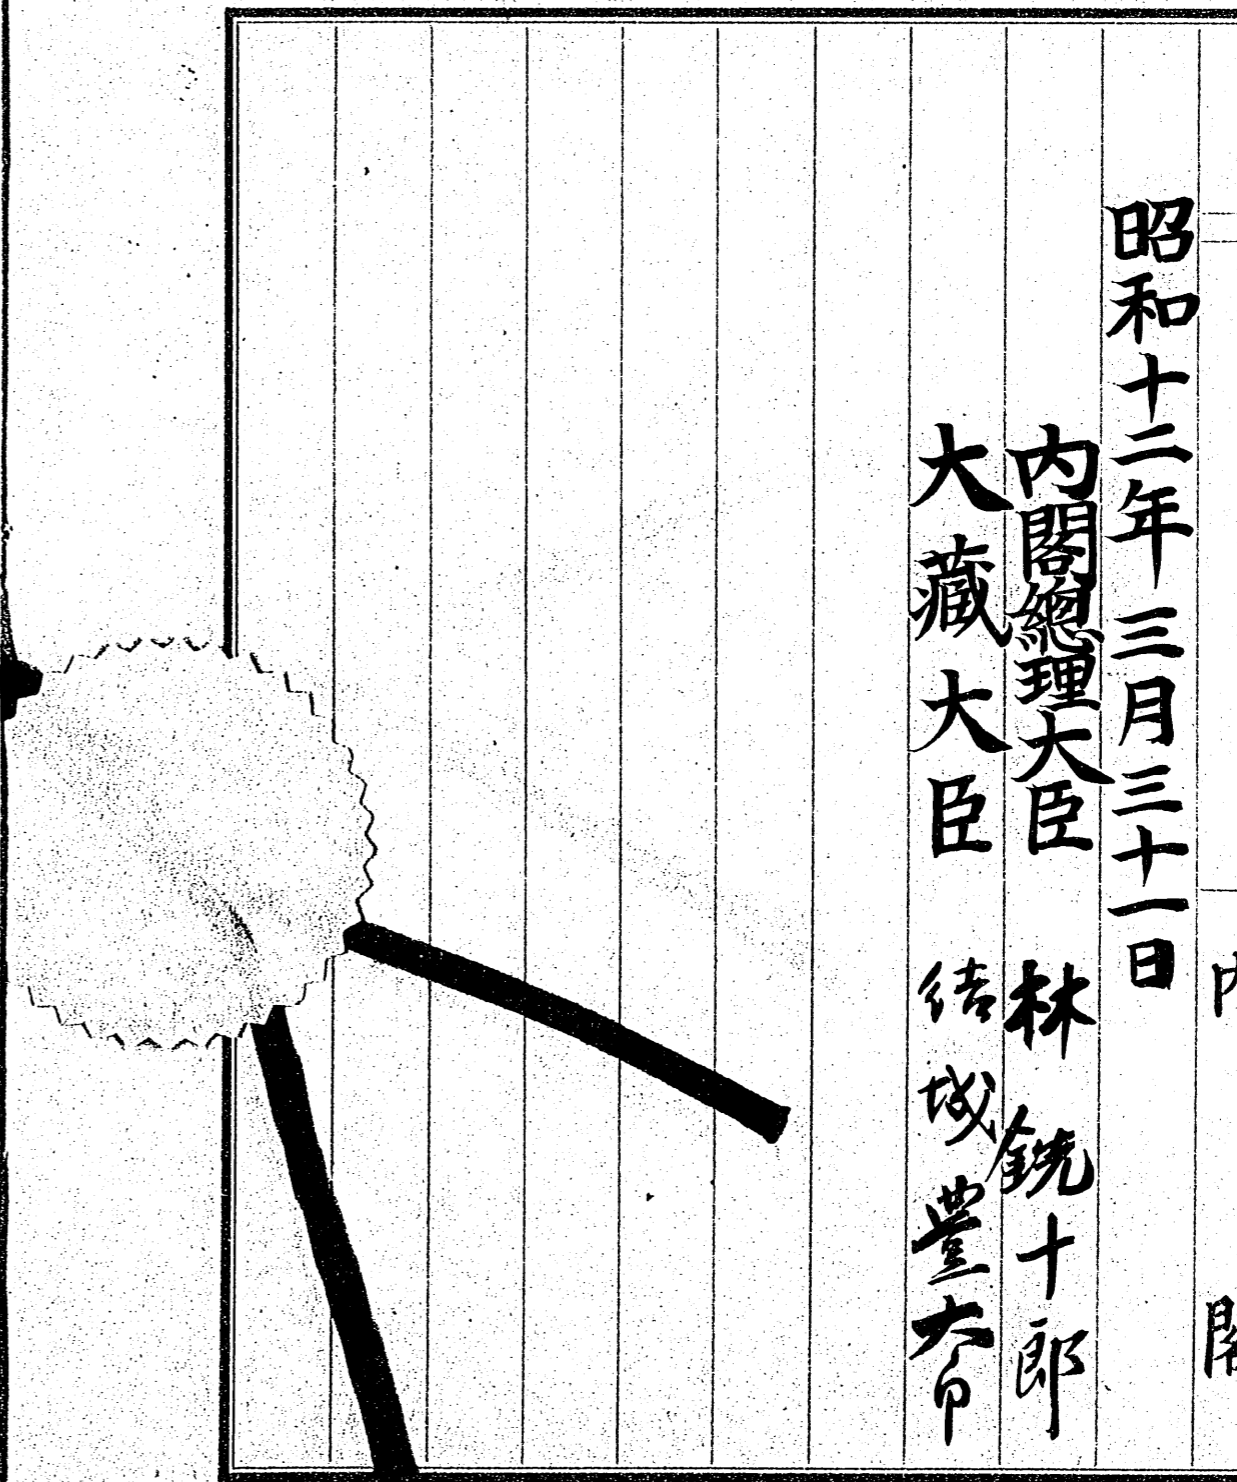 内閣
昭和十二年三月三十一日
内閣總理大臣 林銑十郎
大藏大臣 結城豊太郎